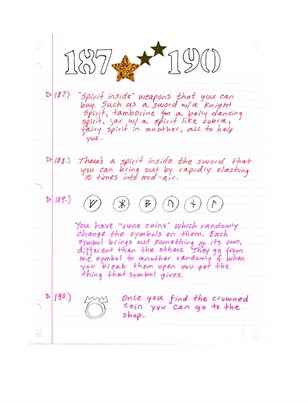 187 190
187.) "Spirit inside" weapons that you can
buy. Such as a sword w/a knight
spirit, tambourine for a belly dancing
spirit, jar w/ a spirit like cobra,
fairy spirit in another, all to help
you.
188.) There's a spirit inside the sword that
you can bring out by rapidly slashing
10 times into mid-air.
189.)
You have "rune coins" which randomly
change the symbols on them. Each
symbol brings out something of its own,
different than the others. They go from
one symbol to another randomly & when
you break them open you get the
thing that symbol gives.
190.) Once you find the crowned
coin you can go to the
shop.